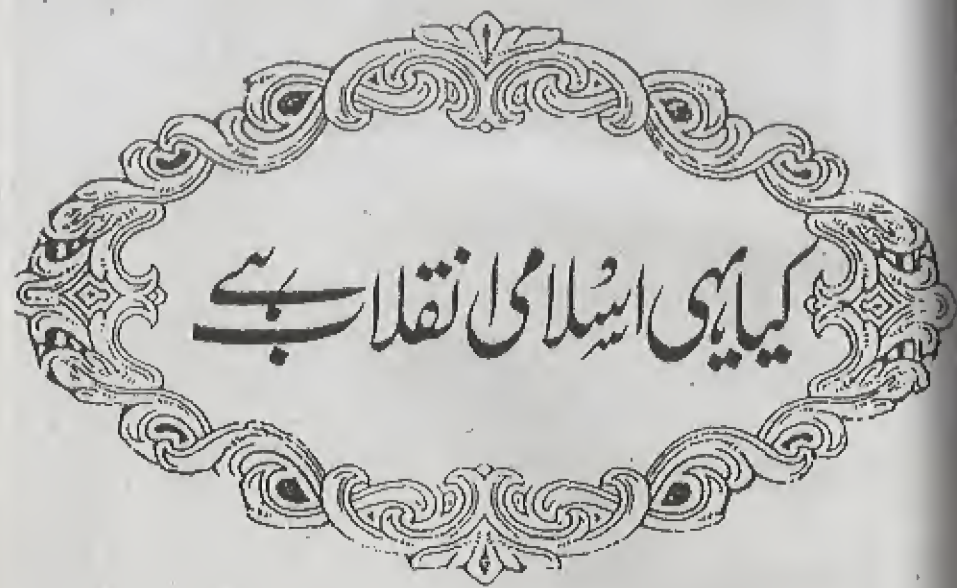 کیا یہی اسلامی انقلاب ہے